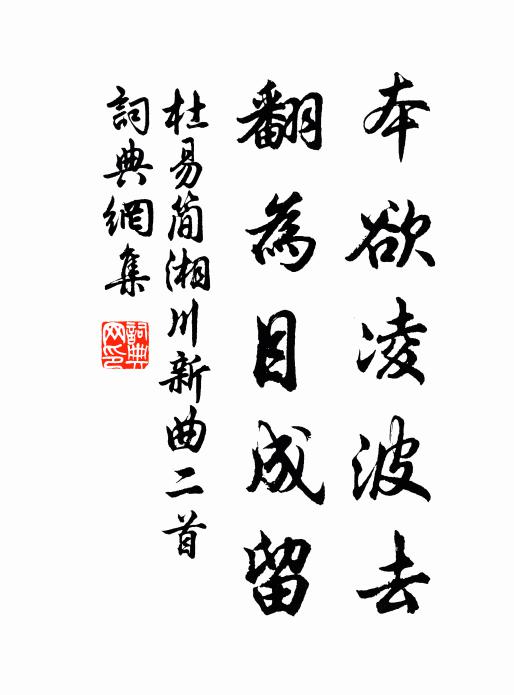 本欲凌波去
翻為目成留
杜易簡湘川新曲二首
詞典網集
詞典网印